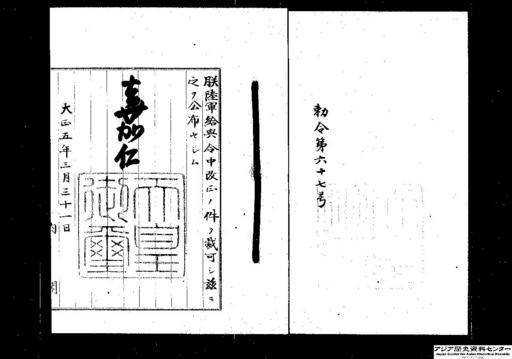 勅令第六十七号
朕陸軍給與令中改正ノ件ヲ裁可シ茲ニ
之ヲ公布セシム
嘉仁
天皇御璽
大正五年三月三十一日
内閣
アジア歴史資料センター
Japan Center for Asian Historical Records